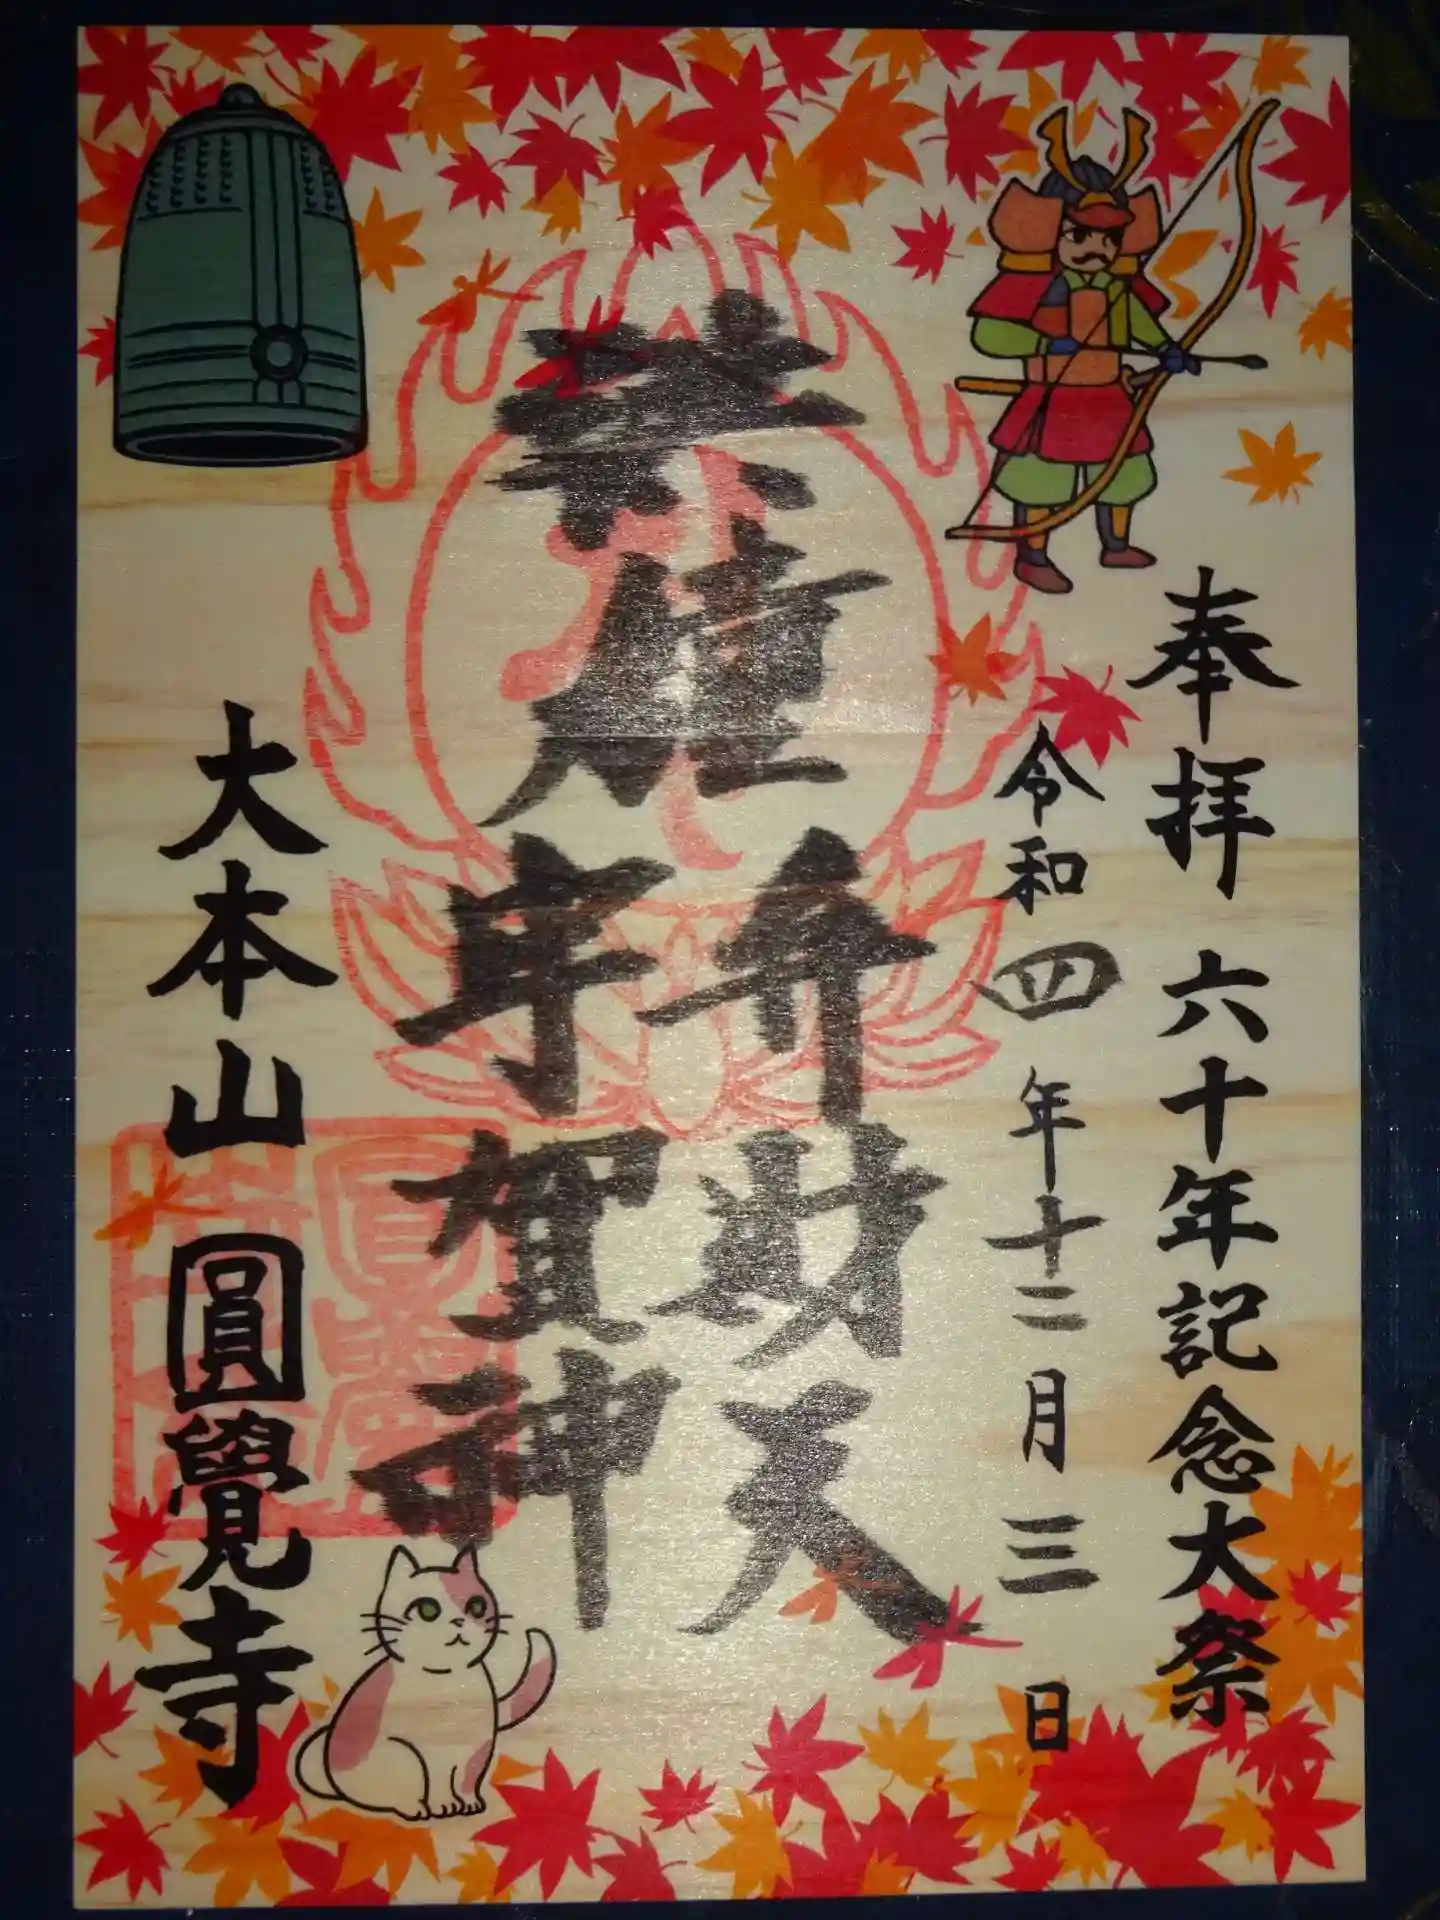 奉拝 六十年記念大祭
令和四年十二月三日
洪鐘
弁財天
宇賀神
大本山圓覺寺